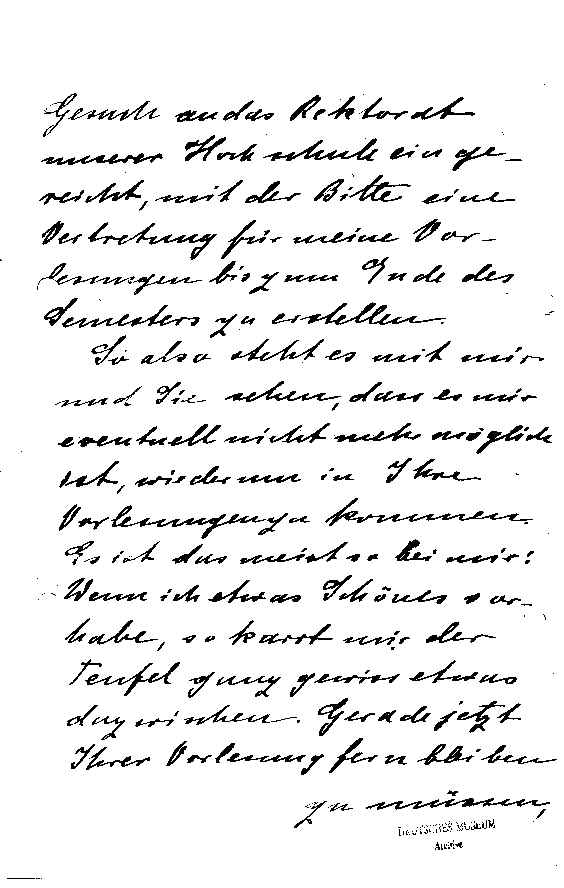 Gesuch an das Rektorat
unserer Hochschule einge-
reicht, mit der Bitte eine
Vertretung für meine Vor-
lesungen bis zum Ende des
Semesters zu erstellen.
So also steht es mit mir
und Sie sehen, dass es mir
eventuell nicht mehr möglich
ist, wiederum in Ihre
Vorlesungen zu kommen.
Es ist das meist so bei mir:
Wenn ich etwas Schönes vor-
habe, so karrt mir der
Teufel ganz gewiss etwas
dazwischen. Gerade jetzt
Ihrer Vorlesung fern bleiben
zu müssen,
DEUTSCHES MUSEUM
Archive